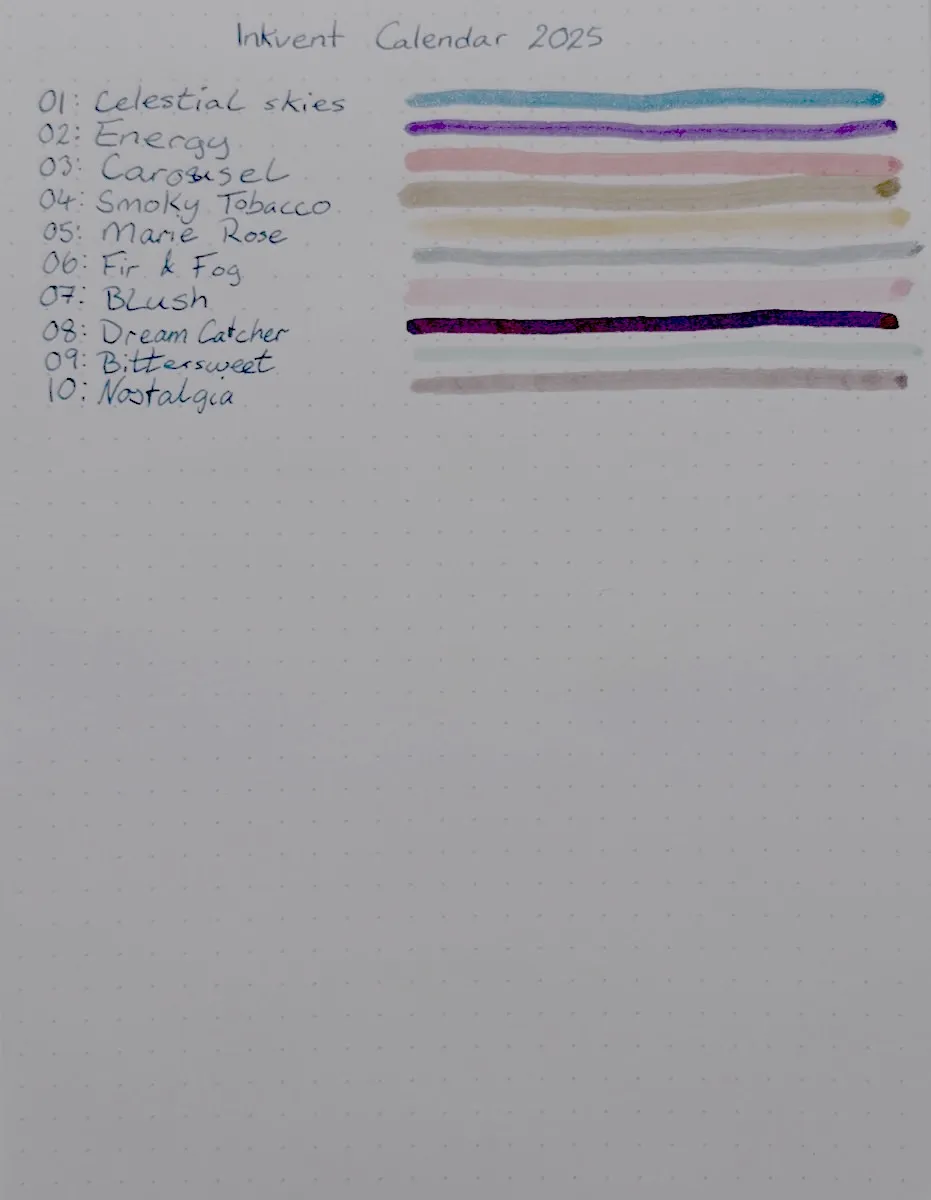 Inkvent Calendar 2025
01: Celestial skies
02: Energy
03: Carousel
04: Smoky Tobacco
05: Marie Rose
06: Fir & Fog
07: Blush
08: Dream Catcher
09: Bittersweet
10: Nostalgia